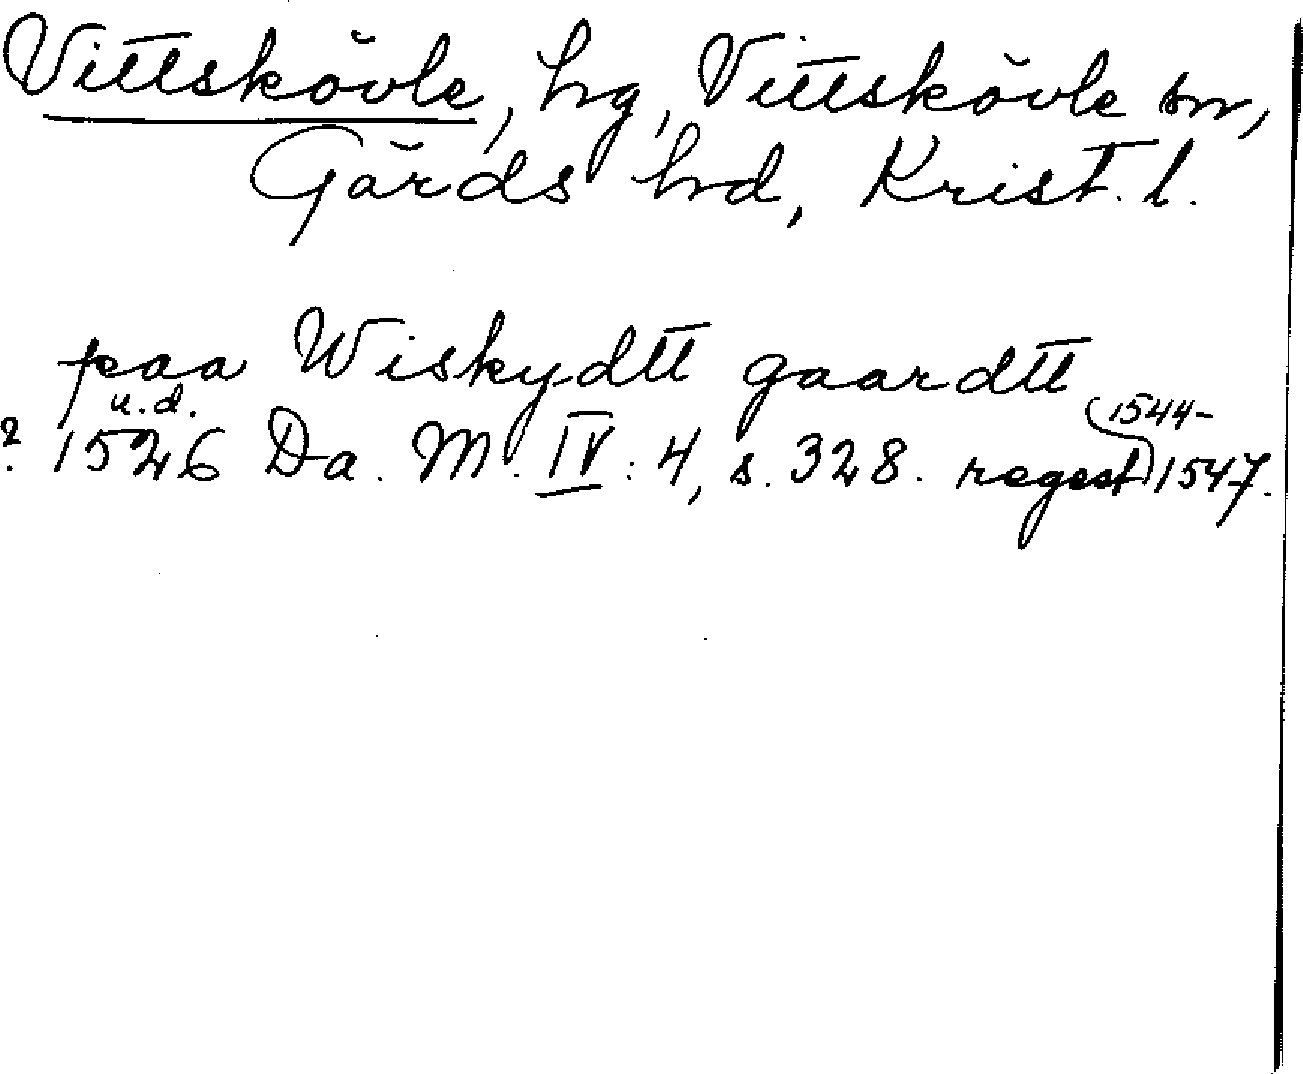 Vittskövle, hg, Vittskövle sn,
Gärds hd, Krist. l.
paa Wiskydtt gaardtt
u.d.
? 1526 Da. M. IV: 4, s. 328. regest (1544-
1547.